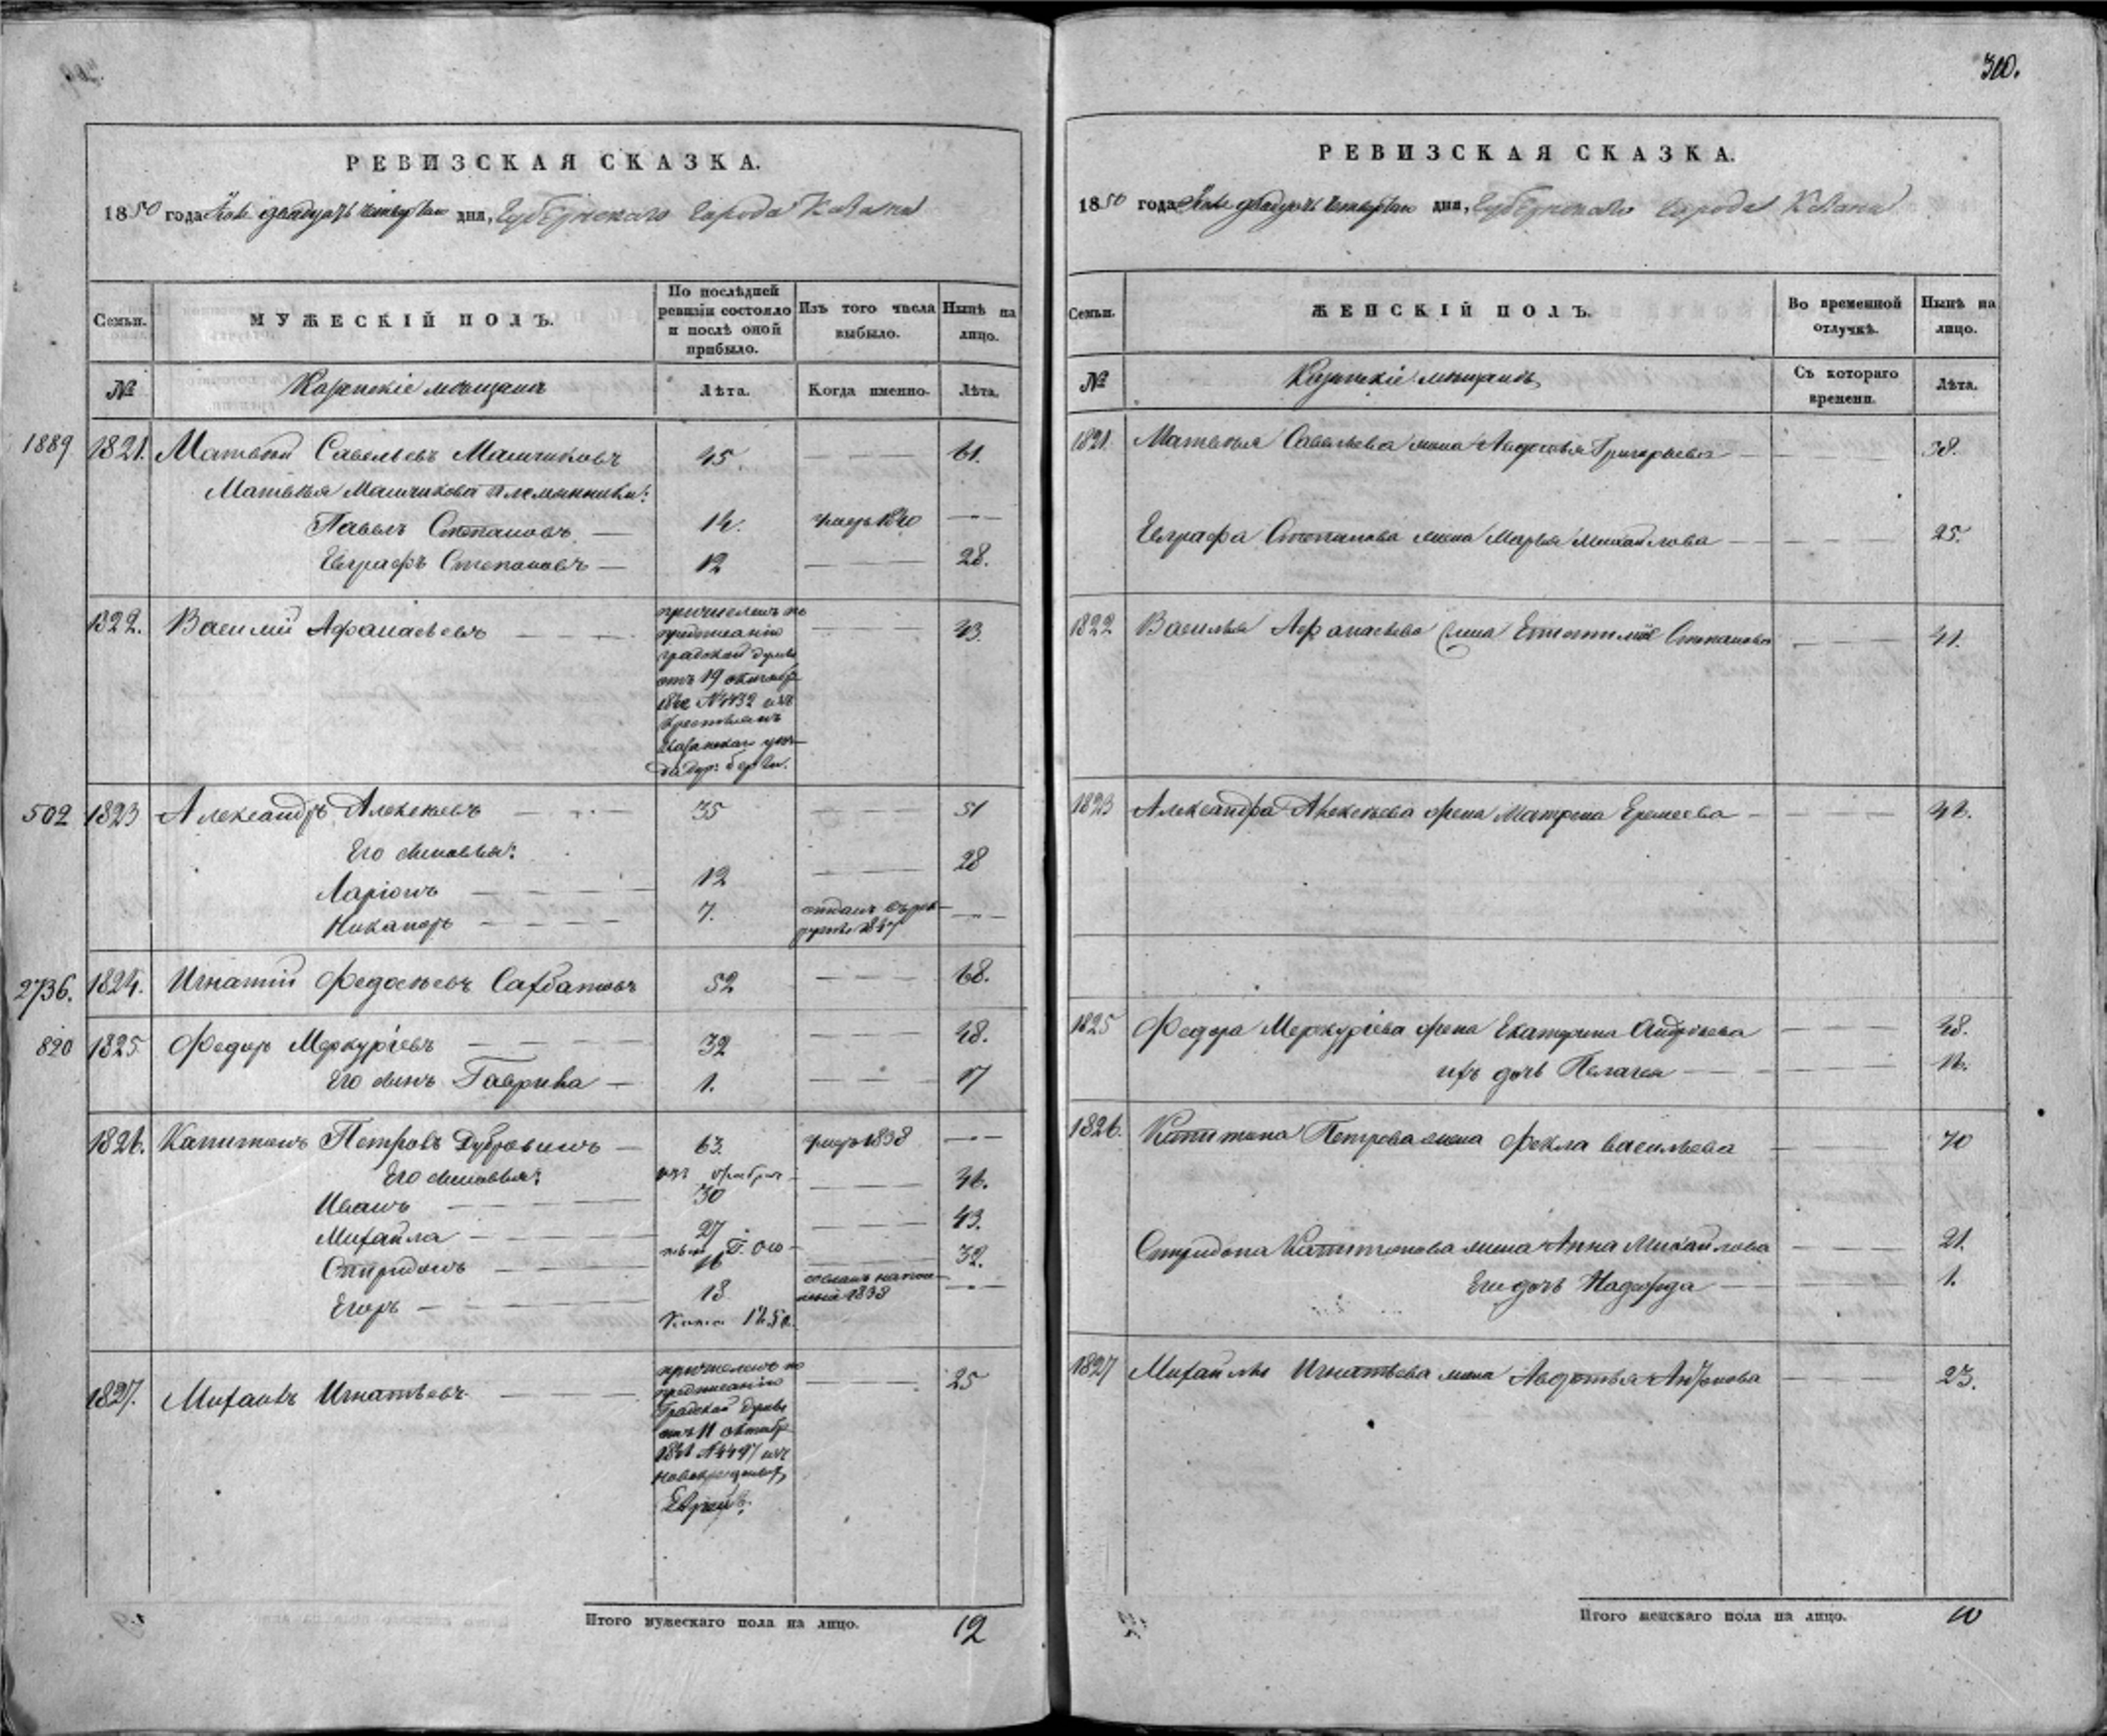 310.
РЕВИЗСКАЯ СКАЗКА.
1850 года Мая двадцать четвертаго дня, Губернскаго города Казани
Семьи.
МУЖЕСКІЙ ПОЛЪ.
По послѣдней ревизіи состояло и послѣ оной прибыло.
Изъ того числа выбыло.
Нынѣ на лицо.
№
Казанскіе мѣщане
Лѣта.
Когда именно.
Лѣта.
1889 1821. Матвей Савельевъ 45. — — — 61.
Матвѣя племянники:
Павелъ Степановъ — 14. умеръ 1840 — — —
Евграфъ Степановъ — 12 — — — 28.
1822. Василій Афанасьевъ — — — причисленъ по предписанію градской думы отъ 19 октября №4432 изъ крестьянъ Казанскаго — — — 43.
502 1823 Александръ Алексѣевъ — — — 35 — — — 51
Его сыновья:
Ларіонъ — — — — 12 — — — 28
Никаноръ — — — — 7. отданъ въ рекруты 1847 — — —
2736. 1824. Игнатій Федосѣевъ 52 — — — 68.
820 1825. Федоръ Меркурьевъ — — — — 32 — — — 48.
Его сынъ Гаврила — 1. — — — 17
1826. Капитонъ Петровъ Дубровинъ — 63. умеръ 1838 — — —
Его сыновья:
Иванъ — — — — 30 — — — 46.
Михайла — — — — 27 — — — 43.
Спиридонъ — — — 16 — — — 32.
Егоръ — — — — 18 сосланъ на 1838 — — —
1827. Михаилъ Игнатьевъ — — — причисленъ по предписанію Градской думы отъ 11 октября №4497 изъ новокрещеныхъ Евреевъ. — — — 25
Итого мужескаго пола на лицо. 12
РЕВИЗСКАЯ СКАЗКА.
1850 года Мая двадцать четвертаго дня, Губернскаго города Казани
Семьи.
ЖЕНСКІЙ ПОЛЪ.
Во временной отлучкѣ.
Нынѣ на лицо.
№
Казанскіе мѣщане
Съ котораго времени.
Лѣта.
1821. Матвѣя Савельева жена Авдотья Григорьева — — — — 38.
Евграфа Степанова жена Марья Михайлова — — — — 25.
1822 Василья Афанасьева жена Степанова — — — 41.
1823 Александра Алексѣева жена Матрена Еремеева — — — — 46.
1825 Федора Меркурьева жена Екатерина Андреева — — — 48.
ихъ дочь Пелагея — — — — 16.
1826. Капитона Петрова жена Фекла Васильева — — — 70
Спиридона Капитонова жена Анна Михайлова — — — 21.
Его дочь Надежда — — — — 1.
1827 Михайлы Игнатьева жена Авдотья Антонова — — — 23.
Итого женскаго пола на лицо. 10